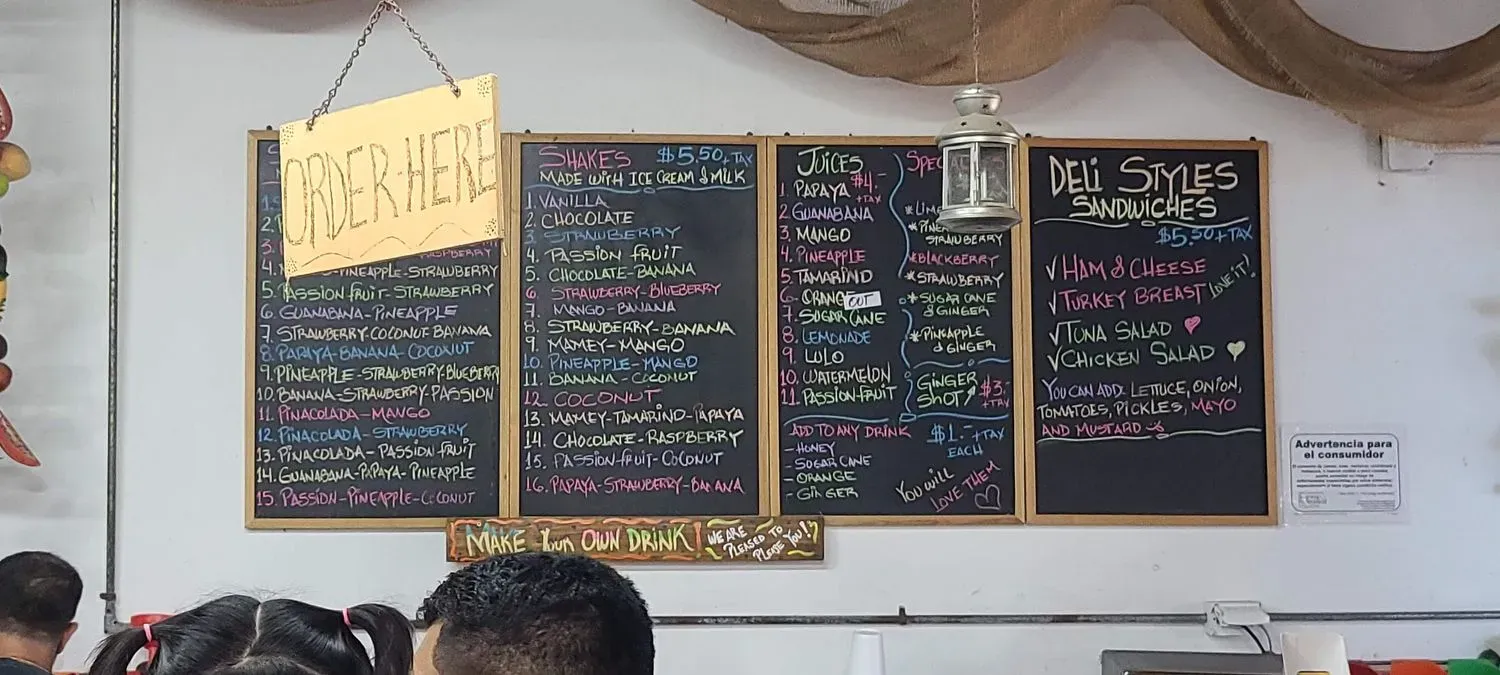 ORDER-HERE
5. PASSION FRUIT-STRAWBERRY
6. GUANABANA-PINEAPPLE
7. STRAWBERRY-COCONUT-BANANA
8. PAPAYA-BANANA-COCONUT
9. PINEAPPLE-STRAWBERRY-BLUEBERRY
10. BANANA-STRAWBERRY-PASSION
11. PINACOLADA-MANGO
12. PINACOLADA-STRAWBERRY
13. PINACOLADA-PASSION FRUIT
14. GUANABANA-PAPAYA-PINEAPPLE
15. PASSION-PINEAPPLE-COCONUT
SHAKES $5.50+TAX
MADE WITH ICE CREAM & MILK
1. VANILLA
2. CHOCOLATE
3. STRAWBERRY
4. PASSION FRUIT
5. CHOCOLATE-BANANA
6. STRAWBERRY-BLUEBERRY
7. MANGO-BANANA
8. STRAWBERRY-BANANA
9. MAMEY-MANGO
10. PINEAPPLE-MANGO
11. BANANA-COCONUT
12. COCONUT
13. MAMEY-TAMARIND-PAPAYA
14. CHOCOLATE-RASPBERRY
15. PASSION-FRUIT-COCONUT
16. PAPAYA-STRAWBERRY-BANANA
JUICES $4.- +TAX
1. PAPAYA
2. GUANABANA
3. MANGO
4. PINEAPPLE
5. TAMARIND
6. ORANGE OUT
7. SUGAR CANE
8. LEMONADE
9. LULO
10. WATERMELON
11. PASSION-FRUIT
STRAWBERRY
*BLACKBERRY
*STRAWBERRY
*SUGAR CANE
& GINGER
*PINEAPPLE
& GINGER
GINGER
SHOT $3.-
+TAX
ADD TO ANY DRINK $1.- +TAX
EACH
- HONEY
- SUGAR CANE
- ORANGE
- GINGER
YOU WILL
LOVE THEM
DELI STYLES
SANDWICHES
$5.50+TAX
√ HAM & CHEESE
√ TURKEY BREAST LOVE IT!
√ TUNA SALAD
√ CHICKEN SALAD
YOU CAN ADD. LETTUCE, ONION,
TOMATOES, PICKLES, MAYO
AND MUSTARD
MAKE YOUR OWN DRINK
WE ARE
PLEASED TO
PLEASE YOU!
Advertencia para
el consumidor